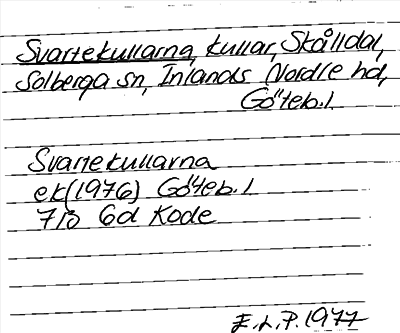 Svartekullarna, kullar, Skålldal,
Solberga sn, Inlands Nordre hd,
Göteb.l.
Svartekullarna
ek(1976) Göteb.l
7B 6d Kode
E.L.P. 1977